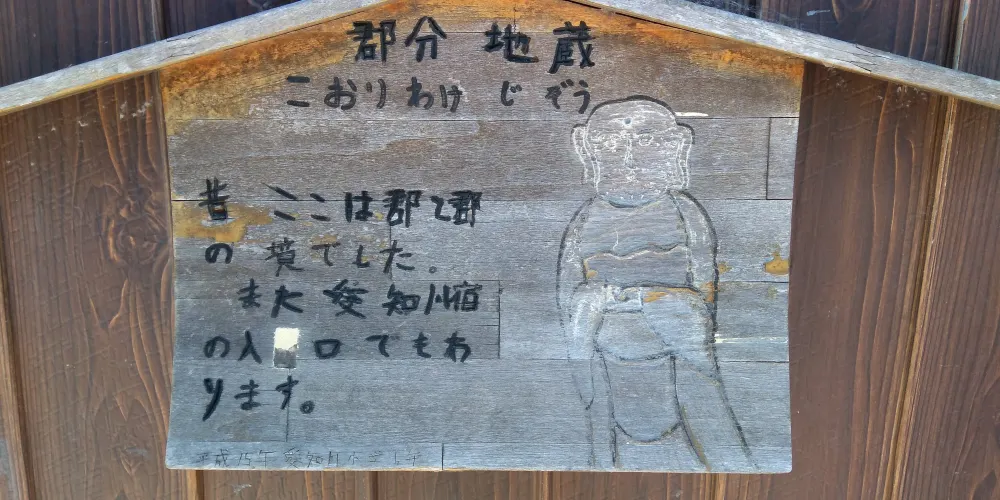 郡分 地蔵
こおりわけ じぞう
昔 ここは郡と郡
の 境でした。
また 愛知川宿
の入 口でもあ
ります。
平成15年 愛知川小